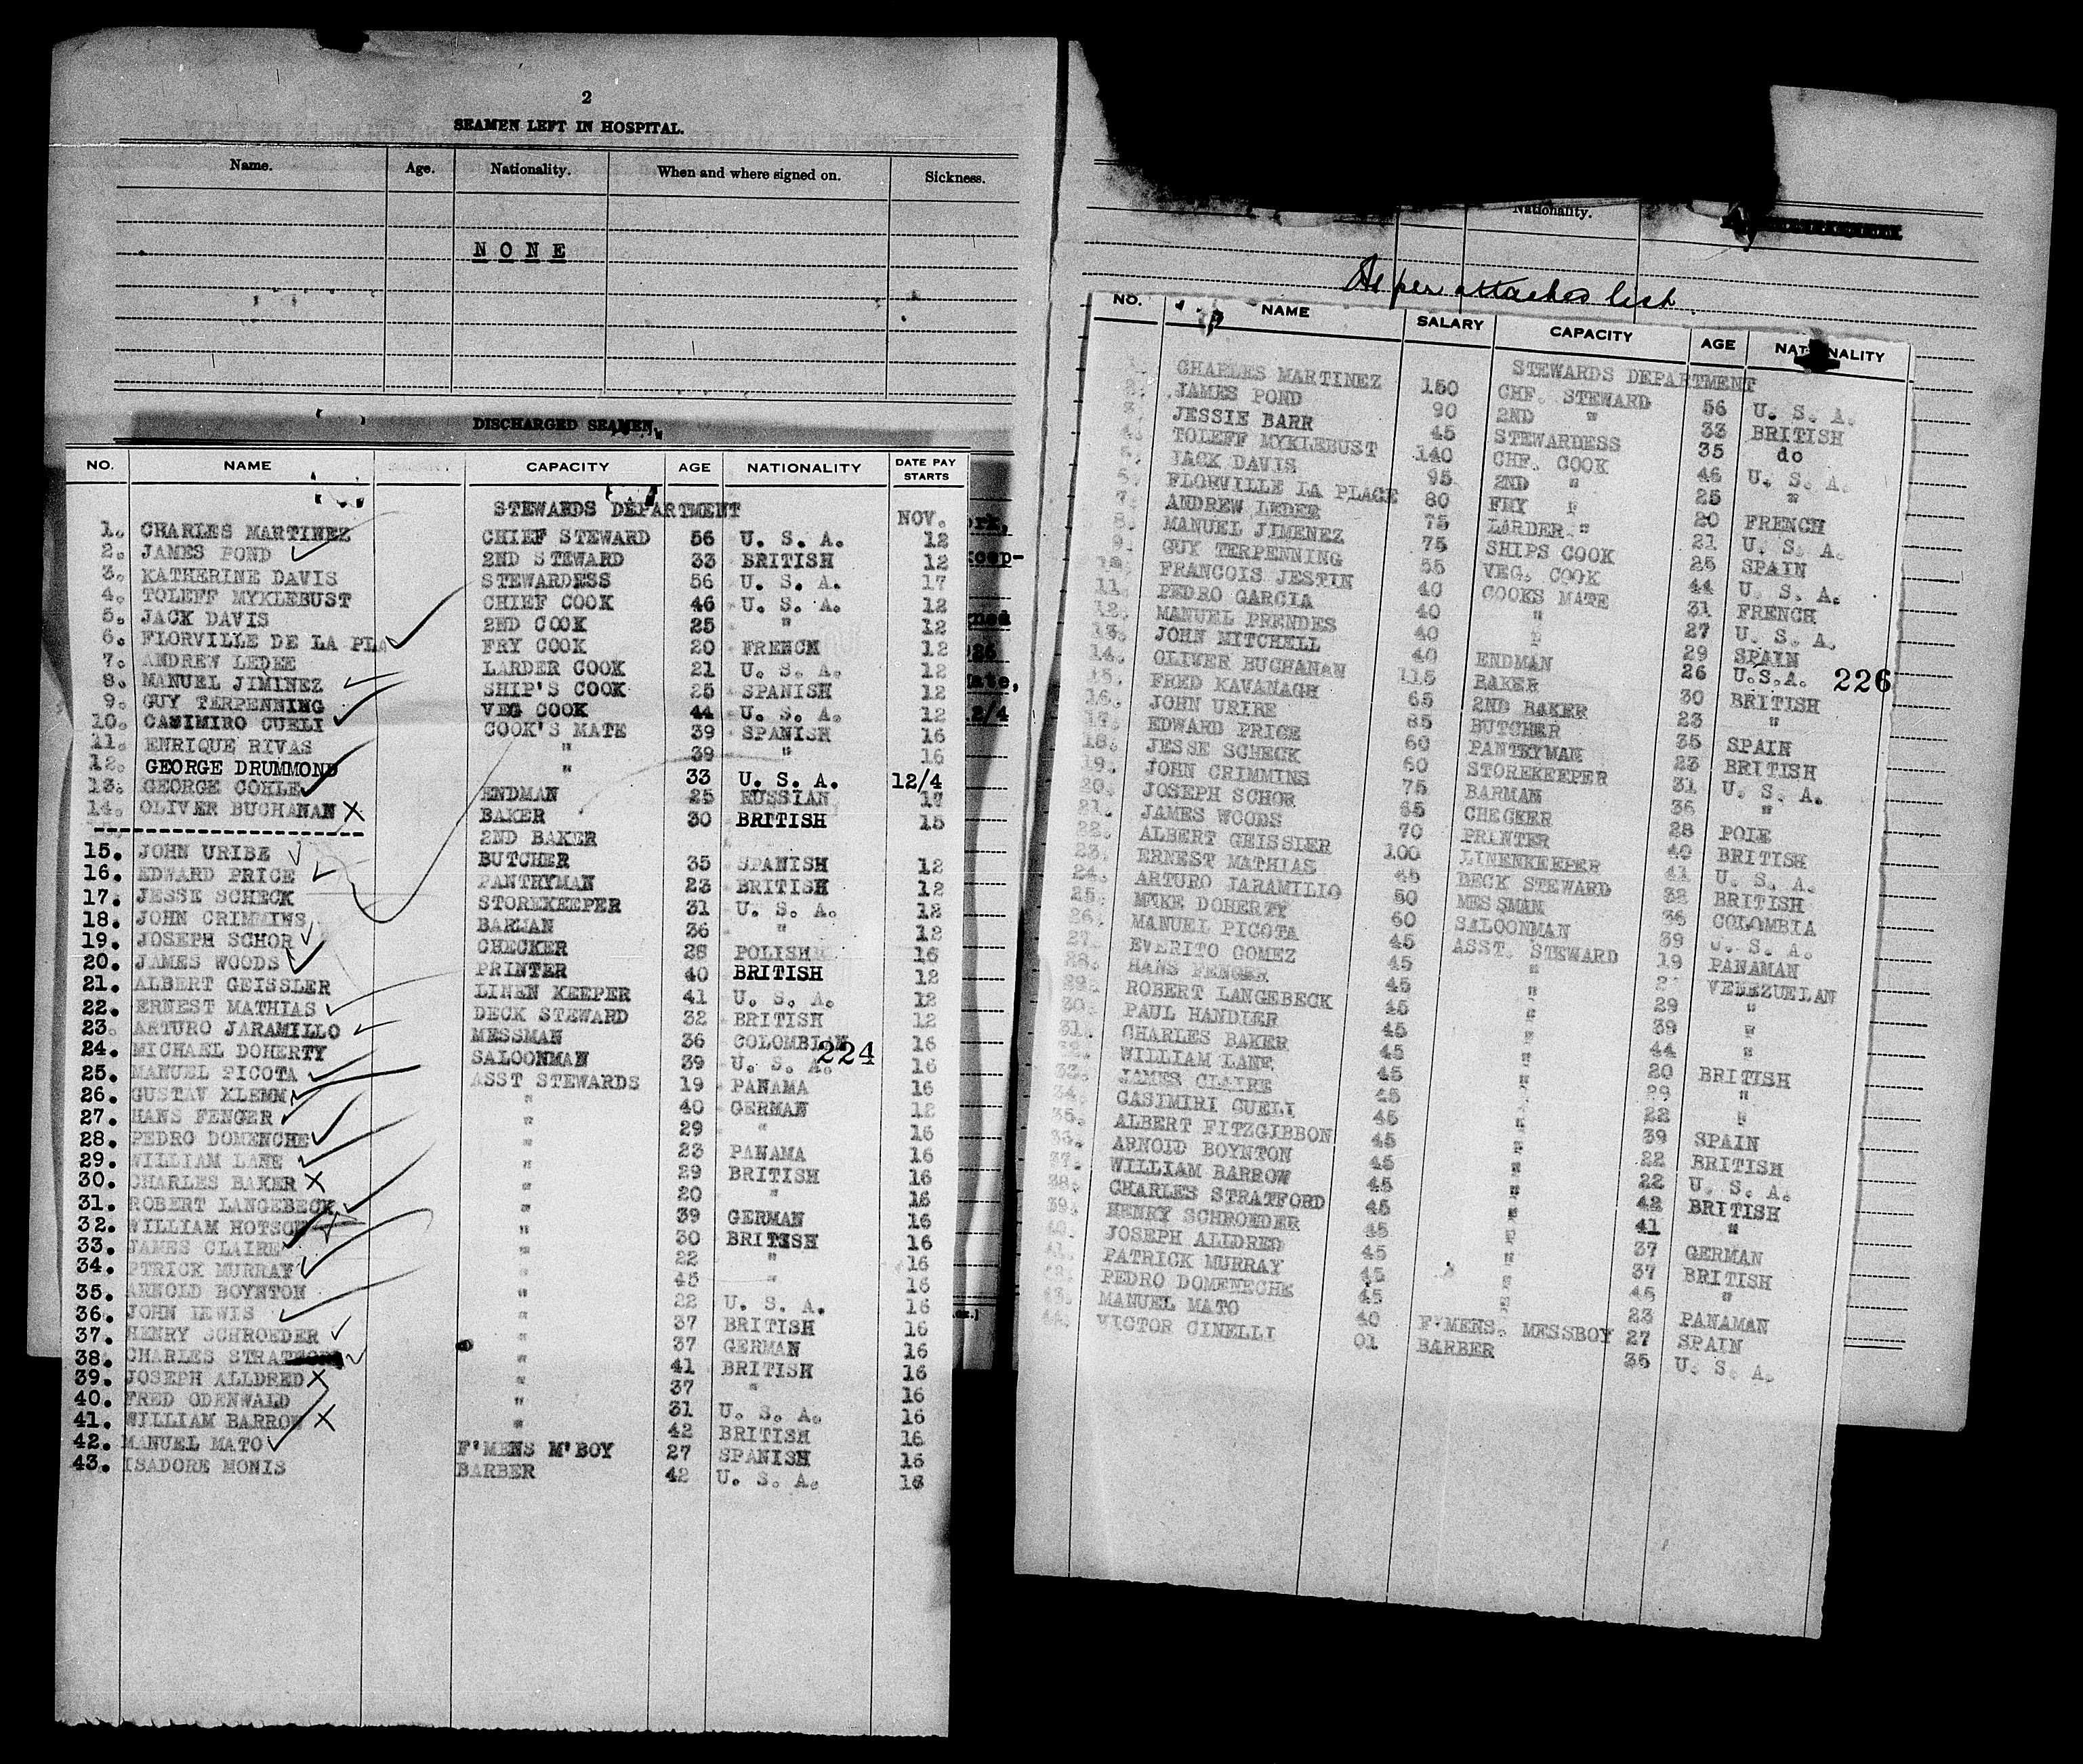 2
SEAMEN LEFT IN HOSPITAL.
Name. Age. Nationality. When and where signed on. Sickness.
NONE
DISCHARGED SEAMEN.
NO. NAME CAPACITY AGE NATIONALITY DATE PAY STARTS
STEWARDS DEPARTMENT NOV.
1. CHARLES MARTINEZ CHIEF STEWARD 56 U. S. A. 12
2. JAMES POND 2ND STEWARD 33 BRITISH 12
3. KATHERINE DAVIS STEWARDESS 56 U. S. A. 17
4. TOLEFF MYKLEBUST CHIEF COOK 46 U. S. A. 12
5. JACK DAVIS 2ND COOK 25 " 12
6. FLORVILLE DE LA PLA FRY COOK 20 FRENCH 12
7. ANDREW LEDEE LARDER COOK 21 U. S. A. 12
8. MANUEL JIMINEZ SHIP'S COOK 25 SPANISH 12
9. GUY TERPENNING VEG COOK 44 U. S. A. 12
10. CASIMIRO CUELI COOK'S MATE 39 SPANISH 16
11. ENRIQUE RIVAS " 39 " 16
12. GEORGE DRUMMOND " 33 U. S. A. 12/4
13. GEORGE COHLE ENDMAN 25 RUSSIAN 17
14. OLIVER BUCHANAN X BAKER 30 BRITISH 15
2ND BAKER
15. JOHN URIBE BUTCHER 35 SPANISH 12
16. EDWARD PRICE PANTRYMAN 23 BRITISH 12
17. JESSE SCHECK STOREKEEPER 31 U. S. A. 12
18. JOHN CRIMMINS BARMAN 36 " 12
19. JOSEPH SCHOR CHECKER 28 POLISH 16
20. JAMES WOODS PRINTER 40 BRITISH 12
21. ALBERT GEISSLER LINEN KEEPER 41 U. S. A. 12
22. ERNEST MATHIAS DECK STEWARD 32 BRITISH 12
23. ARTURO JARAMILLO MESSMAN 36 COLOMBIAN 16
224
24. MICHAEL DOHERTY SALOONMAN 39 U. S. A. 16
25. MANUEL PICOTA ASST STEWARDS 19 PANAMA 16
26. GUSTAV KLEMM " 40 GERMAN 12
27. HANS FENGER " 29 " 16
28. PEDRO DOMENCHE " 23 PANAMA 16
29. WILLIAM LANE " 29 BRITISH 16
30. CHARLES BAKER X " 20 " 16
31. ROBERT LANGEBECK " 39 GERMAN 16
32. WILLIAM HOTSON " 30 BRITISH 16
33. JAMES CLAIRE " 22 " 16
34. PTRICK MURRAY " 45 " 16
35. ARNOLD BOYNTON " 22 U. S. A. 16
36. JOHN LEWIS " 37 BRITISH 16
37. HENRY SCHROEDER " 37 GERMAN 16
38. CHARLES STRATFORD " 41 BRITISH 16
39. JOSEPH ALLDRED X " 37 " 16
40. FRED ODENWALD " 31 U. S. A. 16
41. WILLIAM BARROW X " 42 BRITISH 16
42. MANUEL MATO F'MENS M'BOY 27 SPANISH 16
43. ISADORE MONIS BARBER 42 U. S. A. 16
Nationality.
As per attached list
NO. NAME SALARY CAPACITY AGE NATIONALITY
STEWARDS DEPARTMENT
CHARLES MARTINEZ 150 CHF. STEWARD 56 U. S. A.
2. JAMES POND 90 2ND " 33 BRITISH
3. JESSIE BARR 45 STEWARDESS 35 do
4. TOLEFF MYKLEBUST 140 CHF. COOK 46 U. S. A.
JACK DAVIS 95 2ND " 25 "
FLORVILLE LA PLACE 80 FRY " 20 FRENCH
7. ANDREW LEDEE 75 LARDER " 21 U. S. A.
8. MANUEL JIMENEZ 75 SHIPS COOK 25 SPAIN
9. GUY TERPENNING 55 VEG. COOK 44 U. S. A.
FRANCOIS JESTIN 40 COOKS MATE 31 FRENCH
11. PEDRO GARCIA 40 " 27 U. S. A.
12. MANUEL PRENDES 40 " 29 SPAIN
13. JOHN MITCHELL 40 ENDMAN 26 U.S.A.
226
14. OLIVER BUCHANAN 115 BAKER 30 BRITISH
15. FRED KAVANAGH 65 2ND BAKER 23 "
16. JOHN URIBE 85 BUTCHER 35 SPAIN
17. EDWARD PRICE 60 PANTRYMAN 23 BRITISH
18. JESSE SCHECK 60 STOREKEEPER 31 U. S. A.
19. JOHN CRIMMINS 75 BARMAN 36 "
20. JOSEPH SCHOR 65 CHECKER 28 POLE
21. JAMES WOODS 70 PRINTER 40 BRITISH
22. ALBERT GEISSLER 100 LINENKEEPER 41 U. S. A.
23. ERNEST MATHIAS 45 DECK STEWARD 32 BRITISH
24. ARTURO JARAMILLO 50 MESSMAN 36 COLOMBIA
25. MIKE DOHERTY 60 SALOONMAN 39 U. S. A.
26. MANUEL PICOTA 45 ASST. STEWARD 19 PANAMAN
27. EVERITO GOMEZ 45 " VENEZUELAN
28. HANS FENGER 45 " 29 "
29. ROBERT LANGEBECK 45 " 39 "
30. PAUL HANDIER 45 " 44 "
31. CHARLES BAKER 45 " 20 BRITISH
32. WILLIAM LANE 45 " 29 "
33. JAMES CLAIRE 45 " 22 "
34. CASIMIRI CUELI 45 " 39 SPAIN
35. ALBERT FITZGIBBON 45 " 22 BRITISH
36. ARNOLD BOYNTON 45 " 22 U. S. A.
37. WILLIAM BARROW 45 " 42 BRITISH
38. CHARLES STRATFORD 45 " 41 "
39. HENRY SCHROEDER 45 " 37 GERMAN
40. JOSEPH ALLDRED 45 " 37 BRITISH
41. PATRICK MURRAY 45 " 45 "
PEDRO DOMENECHE 45 " 23 PANAMAN
43. MANUEL MATO 40 F'MENS. MESSBOY 27 SPAIN
44. VICTOR CINELLI 01 BARBER 35 U. S. A.